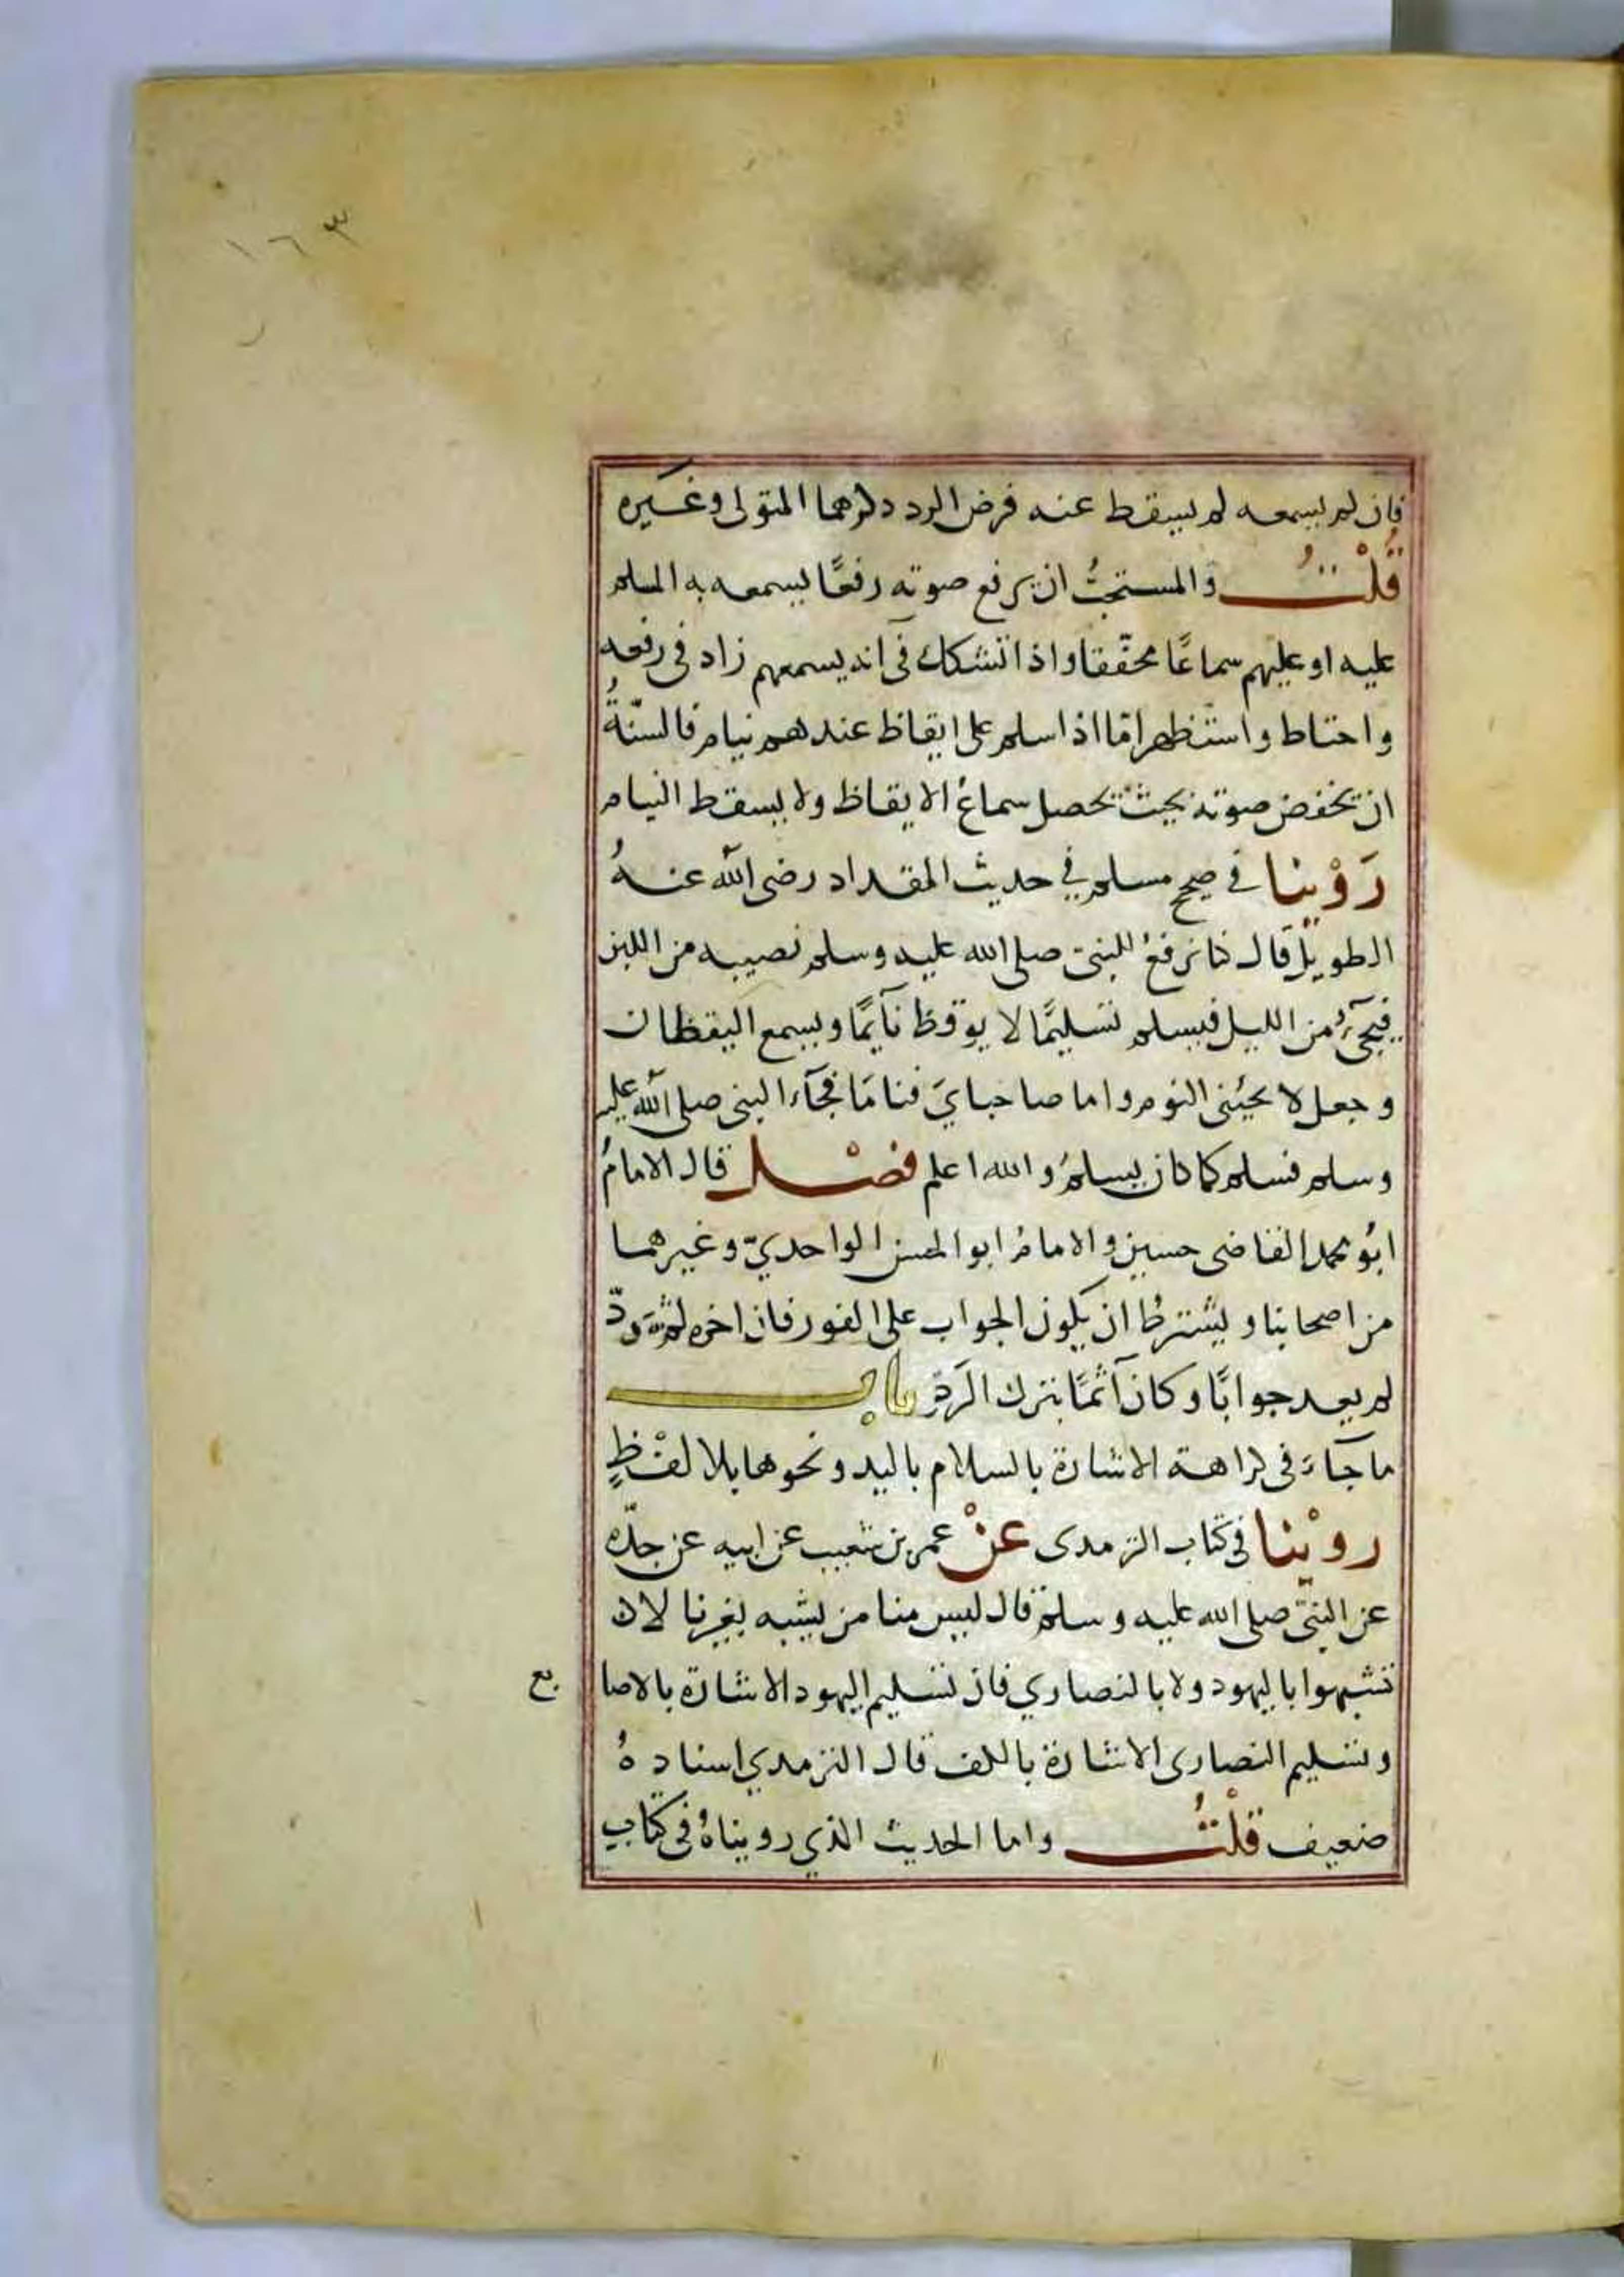 ١٦٣
فان لم يسمعه لم يسقط عنه فرض الرد ذكرهما المتولى وغيره
قُلْتُ وَالمستحبُّ ان يرفع صوته رفعًا يسمعه به المسلم
عليه او عليهم سماعًا محقّقا واذا تشكك فى انه يسمعهم زاد فى رفعه
واحتاط واستظهر امّا اذا سلم على ايقاظ عندهم نيام فالسنّةُ
ان يخفض صوته بحيث يحصل سماعُ الايقاظ ولا يسقط النيام
رَوْينا فى صحيح مسلم في حديث المقداد رضى الله عنهُ
الطويل قال كنا نرفعُ للنبىّ صلى الله عليه وسلم نصيبه من اللبن
فيجىءُ من الليل فيسلم تسليمًا لا يوقظ نآيمًا ويسمع اليقظان
وجعل لا يجيئنى النوم واما صاحبايَ فنامَا فجآء النبى صلى الله عليه
وسلم فسلم كما كان يسلمُ والله اعلم فصْل قال الامامُ
ابُو محمد القاضى حسين والامامُ ابو الحسن الواحديّ وغيرهما
من اصحابنا ويشترطُ ان يكون الجواب على الفور فان اخره ثم ردّ
لم يعد جوابًا وكان آثمًا بترك الرَدّ باب
ما جآءَ فى كراهة الاشارة بالسلام باليد ونحوها بلا لفْظٍ
روْينا فى كتاب الترمدى عنْ عمر بن شعيب عن ابيه عن جدّه
عن النبىّ صلى الله عليه وسلم قال ليس منا من يشبه بغيرنا لان
تشبهوا باليهود ولا بالنصاري فان تسليم اليهود الاشارة بالاصا بع
وتسليم النصارى الاشارة بالكف قال الترمدي اسنادهُ
ضعيف قلْتُ واما الحديث الذي رويناهُ فى كتاب